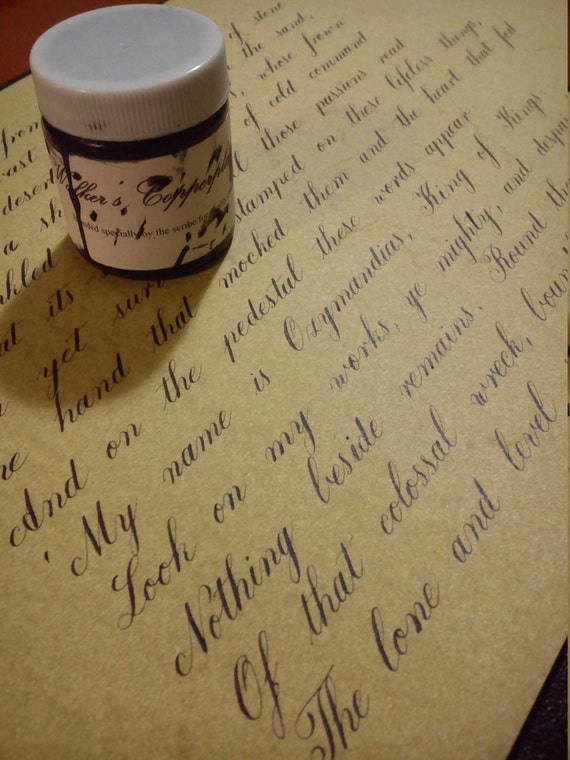 from
vast of stone
desert the sand,
a sh whose frown
nkled of cold command
at its those passions read
yet surv stamped on these lifeless things,
he hand that mocked them and the heart that fed
And on the pedestal these words appear
'My name is Ozymandias, King of Kings.
Look on my works, ye mighty, and despair
Nothing beside remains. Round th
Of that colossal wreck, boun
The lone and level
Walker's Copperpl
ded specially by the scribe